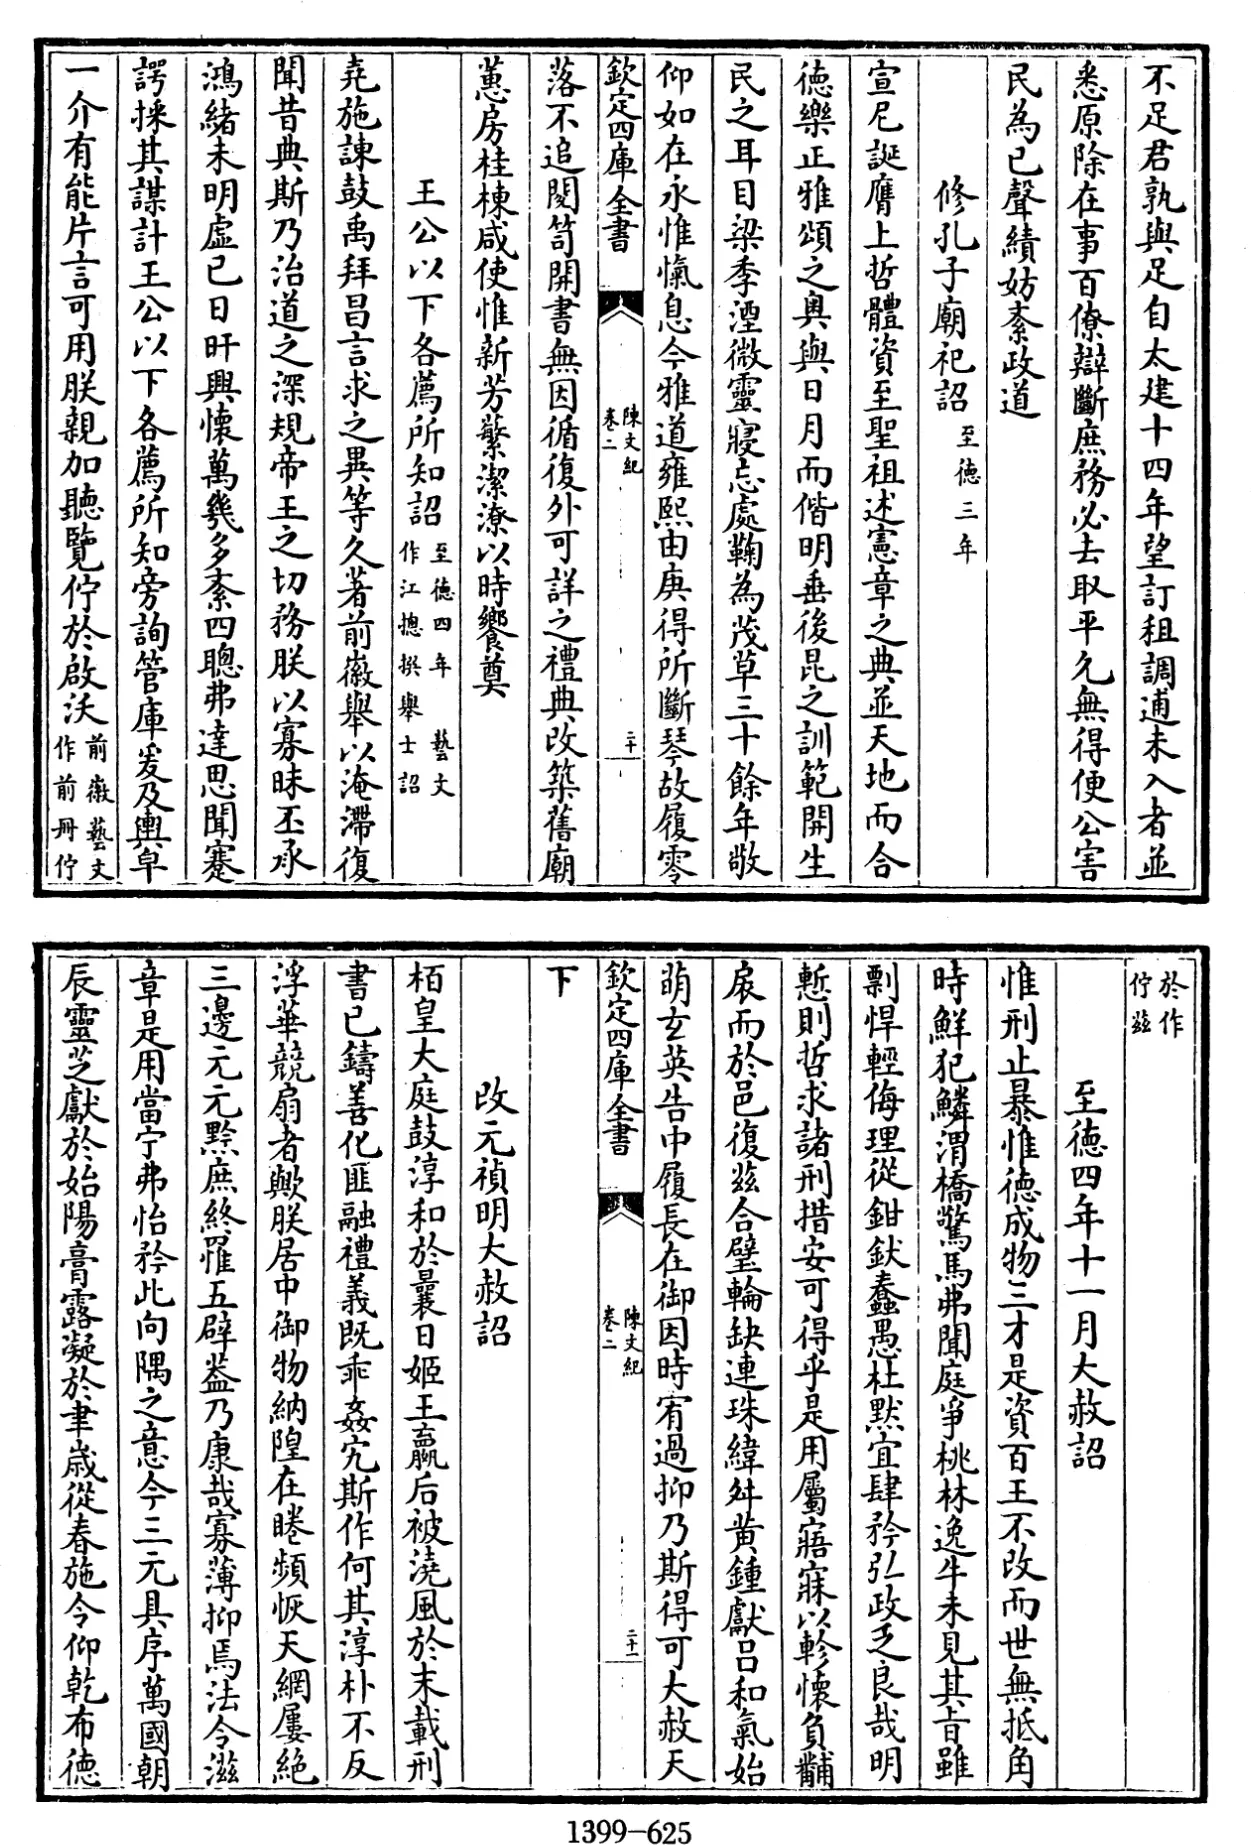 不足君孰與足自太建十四年望訂租調逋未入者並
悉原除在事百僚辯斷庶務必去取平允無得便公害
民為已聲績妨紊政道
修孔子廟祀詔至德三年
宣尼誕膺上哲體資至聖祖述憲章之典並天地而合
德樂正雅頌之奧與日月而偕明垂後昆之訓範開生
民之耳目梁季湮微靈寢忘處鞠為茂草三十餘年敬
仰如在永惟愾息今雅道雍熙由庚得所斷琴故履零
欽定四庫全書
陳文紀
卷二
二十
落不追閱笥開書無因循復外可詳之禮典改築舊廟
蕙房桂棟咸使惟新芳蘩潔潦以時饗奠
王公以下各薦所知詔至德四年 藝文
作江總撰舉士詔
堯施諫鼓禹拜昌言求之異等久著前徽舉以淹滯復
聞昔典斯乃治道之深規帝王之切務朕以寡昧丕承
鴻緒未明虛已日旰興懷萬幾多紊四聰弗達思聞蹇
諤採其謀計王公以下各薦所知旁詢管庫爰及輿皁
一介有能片言可用朕親加聽覽佇於啟沃前徽藝文
作前冊佇
於作
佇兹
至德四年十一月大赦詔
惟刑止暴惟德成物三才是資百王不改而世無抵角
時鮮犯鱗渭橋驚馬弗聞庭爭桃林逸牛未見其旨雖
剽悍輕侮理從鉗釱蠢愚杜默宜肆矜弘政乏良哉明
慙則哲求諸刑措安可得乎是用屬寤寐以軫懷負黼
扆而於邑復兹合璧輪缺連珠緯舛黃鍾獻呂和氣始
萌玄英告中履長在御因時宥過抑乃斯得可大赦天
欽定四庫全書
陳文紀
卷二
二十一
下
改元禎明大赦詔
栢皇大庭鼓淳和於曩日姬王嬴后被澆風於末載刑
書已鑄善化匪融禮義既乖姦宄斯作何其淳朴不反
浮華競扇者歟朕居中御物納隍在睠頻恢天網屢絕
三邊元元黔庶終罹五辟蓋乃康哉寡薄抑焉法令滋
章是用當宁弗怡矜此向隅之意今三元具序萬國朝
辰靈芝獻於始陽膏露凝於聿歲從春施令仰乾布德
1399-625